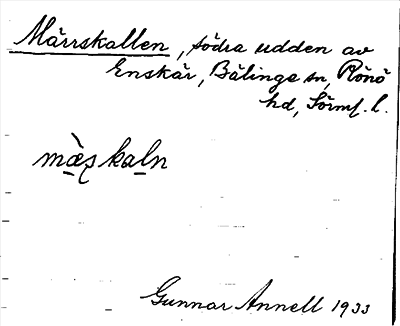 Märrskallen, södra udden av
Enskär, Bälinge sn, Rönö
hd, Sörml. l.
mæ̀skaln
Gunnar Annell 1933